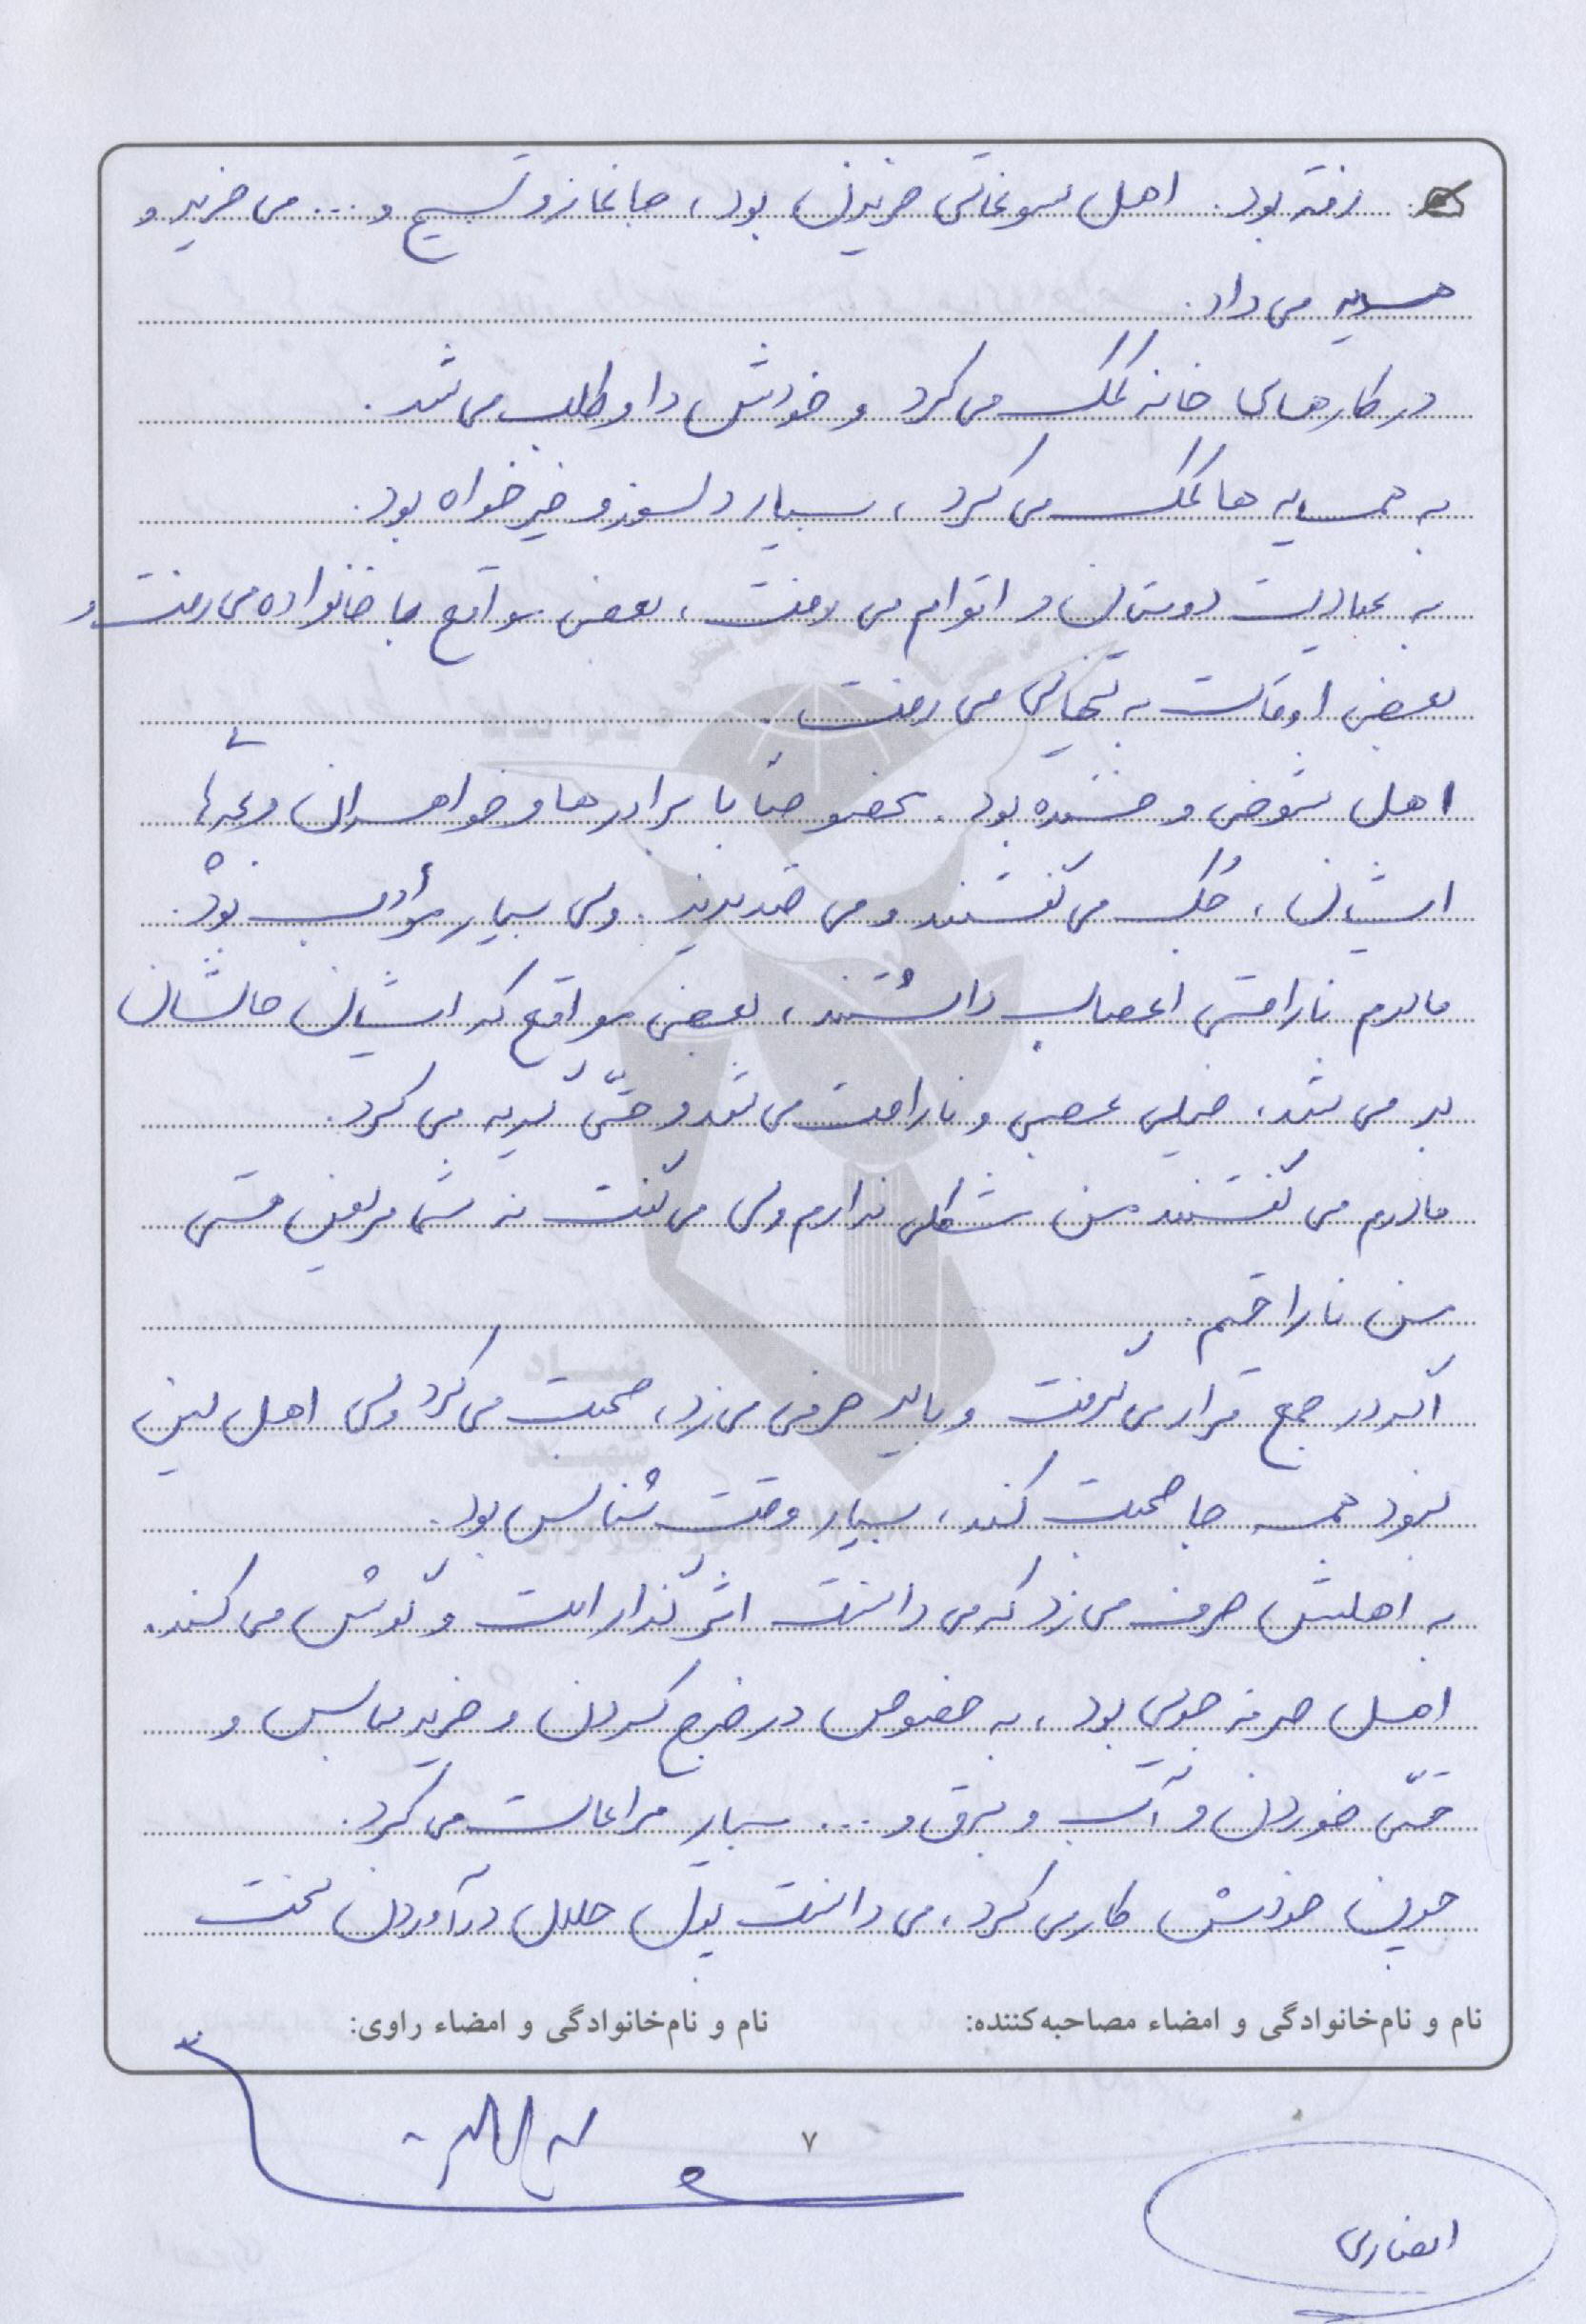 رفته بود. اهل سوغاتی خریدن بود، جانماز و تسبیح و ... می خرید و
هدیه می داد.
در کارهای خانه کمک می کرد و خودش داوطلب می شد.
به همسایه ها کمک می کرد، بسیار دلسوز و خیرخواه بود.
به عیادت دوستان و اقوام می رفت، بعضی مواقع با خانواده می رفت و
بعضی اوقات به تنهائی می رفت.
اهل شوخی و خنده بود. بخصوصاً با برادرها و خواهران و بچه های
ایشان، جُک می گفتند و می خندیدند. ولی بسیار مؤدب بود.
مادرم ناراحتی اعصاب داشتند، بعضی مواقع که ایشان حالشان
بد می شد، خیلی عصبی و ناراحت می شد و حتّی گریه می کرد.
مادرم می گفتند من مشکلی ندارم ولی می گفت نه شما مریض هستی
من ناراحتم.
اگر در جمع قرار می گرفت و باید حرفی می زد، صحبت می کرد ولی اهل این
نبود همه جا صحبت کند، بسیار وقت شناس بود.
به اهلش حرف می زد که می دانست اثرگذار است و گوش می کند.
اهل صرفه جویی بود، به خصوص در خرج کردن و خرید لباس و
حتّی خوردن و آب و برق و ... بسیار مراعات می کرد.
چون خودش کار می کرد، می دانست پول حلال درآوردن سخت
نام و نام‌خانوادگی و امضاء مصاحبه‌کننده:
نام و نام‌خانوادگی و امضاء راوی:
۷
انصاری